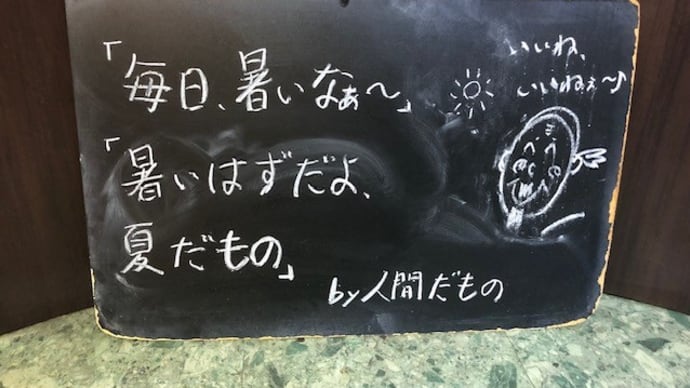 「毎日、暑いなぁ〜」
「暑いはずだよ、
夏だもの」
by人間だもの
いいね、
いいねぇ〜♪